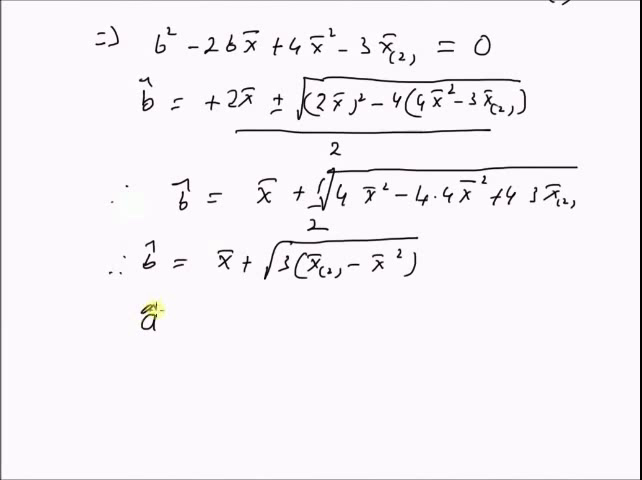 ⇒ b² - 2bx̄ + 4x̄² - 3x̄₍₂₎ = 0
b̂ = +2x̄ ± √((2x̄)² - 4(4x̄² - 3x̄₍₂₎)) / 2
∴ b̂ = x̄ + 1/2 √(4x̄² - 4·4x̄² + 4 3x̄₍₂₎)
∴ b̂ = x̄ + √(3(x̄₍₂₎ - x̄²))
â